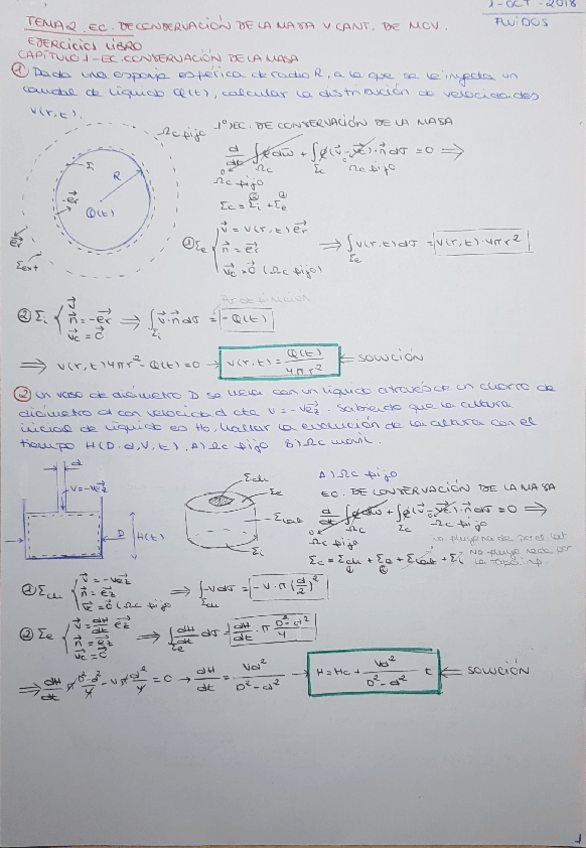 1-OCT-2018
FLUIDOS
TEMA 2. EC. DE CONSERVACIÓN DE LA MASA Y CANT. DE MOV.
EJERCICIOS LIBRO
CAPÍTULO 1 - EC. CONSERVACIÓN DE LA MASA
① Dada una esponja esférica de radio R, a la que se le inyecta un
caudal de líquido Q(t), calcular la distribución de velocidades
v(r,t).
Ωc fijo
1º) EC. DE CONSERVACIÓN DE LA MASA
Σi
R
Q(t)
-er
er
Σext
d/dt ∫Ωc ρ dω + ∫Σc ρ(v - vc)·n dσ = 0 ⇒
Ωc fijo Ωc fijo
Σc = Σi + Σe
① Σe { v = v(r,t) er
n = er
vc = 0 (Ωc fijo)
⇒ ∫Σe v(r,t) dσ = v(r,t)·4πr²
② Σi { v
n = -er
vc = 0
⇒ ∫Σi v·n dσ = -Q(t)
Por definición
⇒ v(r,t)4πr² - Q(t) = 0 → v(r,t) = Q(t)/4πr² ⇐ SOLUCIÓN
② Un vaso de diámetro D se llena con un líquido a través de un chorro de
diámetro d con velocidad cte V = -Vez. Sabiendo que la altura
inicial de líquido es Ho, hallar la evolución de la altura con el
tiempo H(D,d,V,t). A) Ωc fijo B) Ωc móvil.
d
V = -Vez
D
H(t)
Σch
Σe
Σlat
Σi
A) Ωc fijo
EC. DE CONSERVACIÓN DE LA MASA
d/dt ∫Ωc ρ dω + ∫Σc ρ(v - vc)·n dσ = 0 ⇒
Ωc fijo Ωc fijo
Σc = Σch + Σe + Σlat + Σi
① Σch { v = -Vez
n = ez
vc = 0 (Ωc fijo)
⇒ ∫Σch -V dσ = -V·π(d/2)²
② Σe { v = dH/dt ez
n = ez
vc = 0
⇒ ∫Σe dH/dt dσ = dH/dt · π (D²-d²)/4
⇒ dH/dt π (D²-d²)/4 - Vπ d²/4 = 0 → dH/dt = Vd²/(D²-d²) → H = Ho + Vd²/(D²-d²) t ⇐ SOLUCIÓN
1